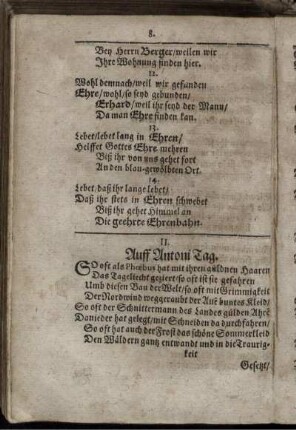 8.
Bey Herrn Berger/weilen wir
Ihre Wohnung finden hier.
12.
Wohl demnach/weil wir gefunden
Ehre/wohl/so seyd gebunden/
Erhard/weil ihr seyd der Mann/
Da man Ehre finden kan.
13.
Lebet/lebet lang in Ehren/
Helffet Gottes Ehre mehren
Biß ihr von uns gehet fort
An den blau-gewölbten Ort.
14.
Lebet daß ihr lange lebet/
Daß ihr stets in Ehren schwebet
Biß ihr gehet Himmel an
Die geehrte Ehrenbahn.
II.
Auff Antoni Tag.
SO oft als Phœbus hat mit ihren güldnen Haaren
Das Tageliecht geziert/so oft ist sie gefahren
Umb diesen Bau der Welt/so oft mit Grimmigkeit
Der Nordwind weggeraubt der Aue buntes Kleid/
So oft der Schnittermann des Landes gülden Ähre
Danieder hat gelegt/mit Schneiden da durchfahren/
So oft hat auch der Frost das schöne Sommerkleid
Den Wäldern gantz entwandt und in die Traurig-
keit
Gesetzt/